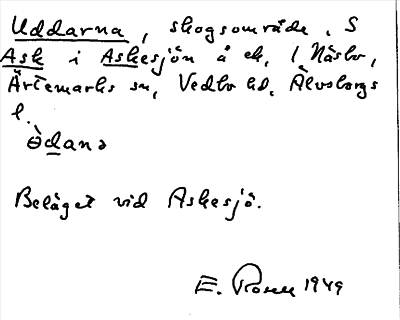 Uddarna, skogsområde, S
Ask i Askesjön å ek, 1 Näsbo,
Ärtemarks sn, Vedbo hd, Älvsborgs
l.
ədanə
Beläget vid Askesjö.
E. Rosen 1949